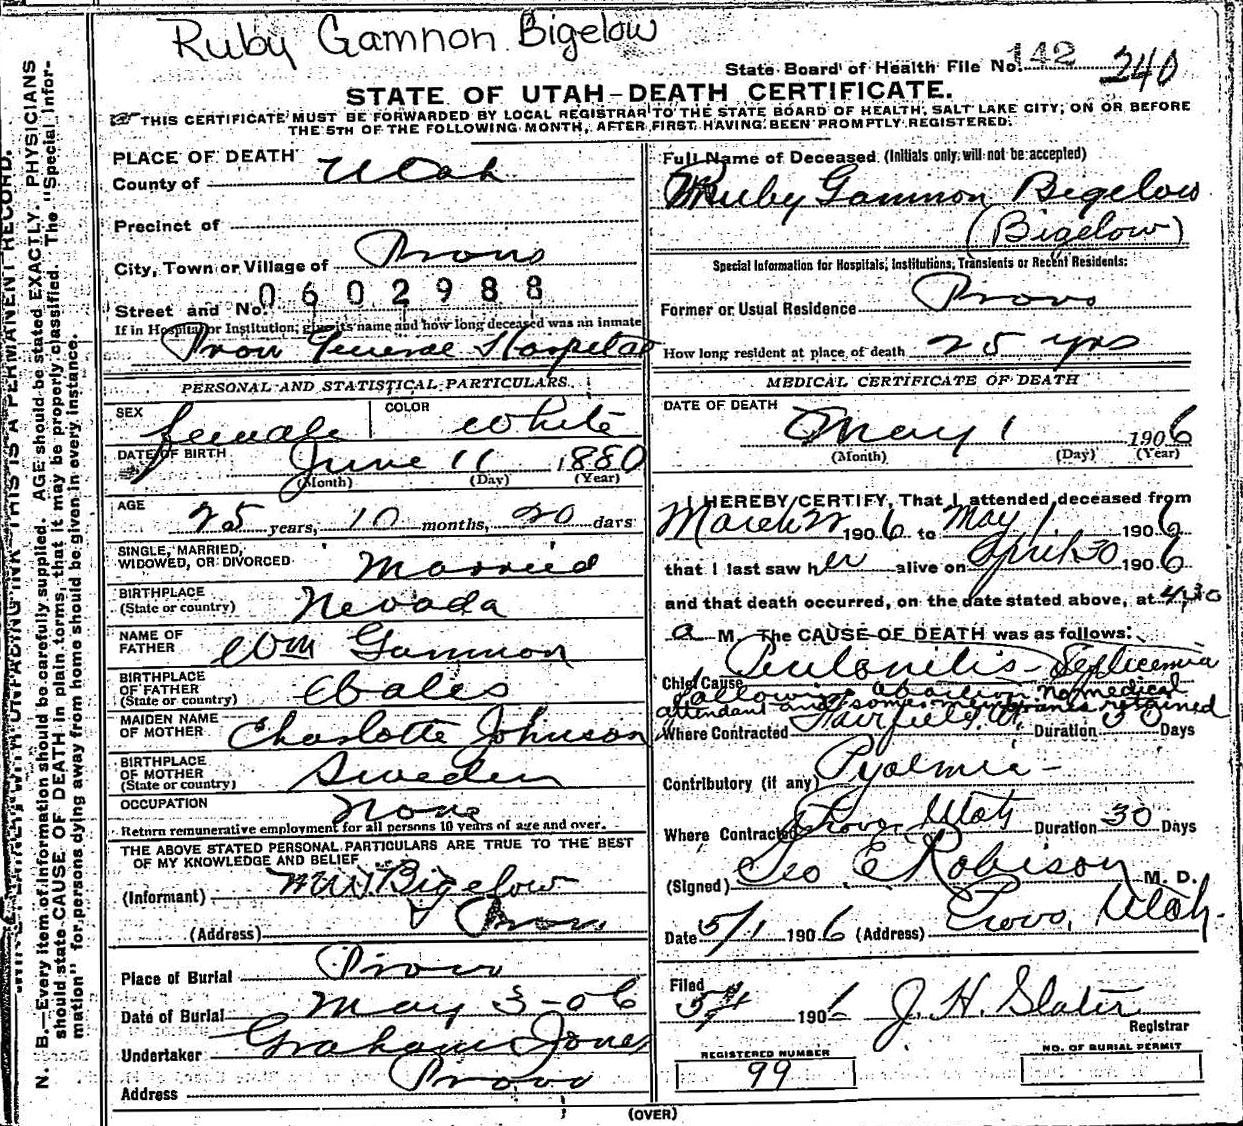 Ruby Gamnon Bigelow
State Board of Health File No. 142 240
STATE OF UTAH—DEATH CERTIFICATE.
THIS CERTIFICATE MUST BE FORWARDED BY LOCAL REGISTRAR TO THE STATE BOARD OF HEALTH, SALT LAKE CITY, ON OR BEFORE
THE 5TH OF THE FOLLOWING MONTH, AFTER FIRST HAVING BEEN PROMPTLY REGISTERED.
PLACE OF DEATH
County of Utah
Precinct of
City, Town or Village of Provo
Street and No. 0602988
If in Hospital or Institution, give its name and how long deceased was an inmate
Provo General Hospital
PERSONAL AND STATISTICAL PARTICULARS.
SEX female COLOR White
DATE OF BIRTH June 11 1880
(Month) (Day) (Year)
AGE 25 years, 10 months, 20 days
SINGLE, MARRIED,
WIDOWED, OR DIVORCED Married
BIRTHPLACE
(State or country) Nevada
NAME OF
FATHER Wm Gammon
BIRTHPLACE
OF FATHER
(State or country) Wales
MAIDEN NAME
OF MOTHER Charlotte Johnson
BIRTHPLACE
OF MOTHER
(State or country) Sweden
OCCUPATION None
Return remunerative employment for all persons 10 years of age and over.
THE ABOVE STATED PERSONAL PARTICULARS ARE TRUE TO THE BEST
OF MY KNOWLEDGE AND BELIEF
(Informant) Bigelow
(Address) Provo
Place of Burial Provo
Date of Burial May 3-06
Undertaker Graham Jones
Address Provo
Full Name of Deceased (Initials only will not be accepted)
Ruby Gammon Bigelow
(Bigelow)
Special Information for Hospitals, Institutions, Transients or Recent Residents:
Former or Usual Residence Provo
How long resident at place of death 25 yrs
MEDICAL CERTIFICATE OF DEATH
DATE OF DEATH
May 1 1906
(Month) (Day) (Year)
I HEREBY CERTIFY, That I attended deceased from
March 22 1906 to May 1 1906
that I last saw her alive on April 30 1906
and that death occurred, on the date stated above, at 4:30
a M. The CAUSE OF DEATH was as follows:
Chief Cause Peritonitis - Septicemia
following abortion no medical
attendant and some membranes retained
Where Contracted Fairfield, Ut. Duration 30 Days
Contributory (if any) Pyaemia -
Where Contracted Provo, Utah Duration 30 Days
(Signed) Geo E Robison M. D.
Date 5/1 1906 (Address) Provo, Utah.
Filed
1906 J. H. Slater
Registrar
REGISTERED NUMBER
99
NO. OF BURIAL PERMIT
(OVER)
N. B.—Every item of information should be carefully supplied. AGE should be stated EXACTLY. PHYSICIANS
should state CAUSE OF DEATH in plain terms, that it may be properly classified. The "Special Infor-
mation" for persons dying away from home should be given in every instance.
THIS IS A PERMANENT RECORD.